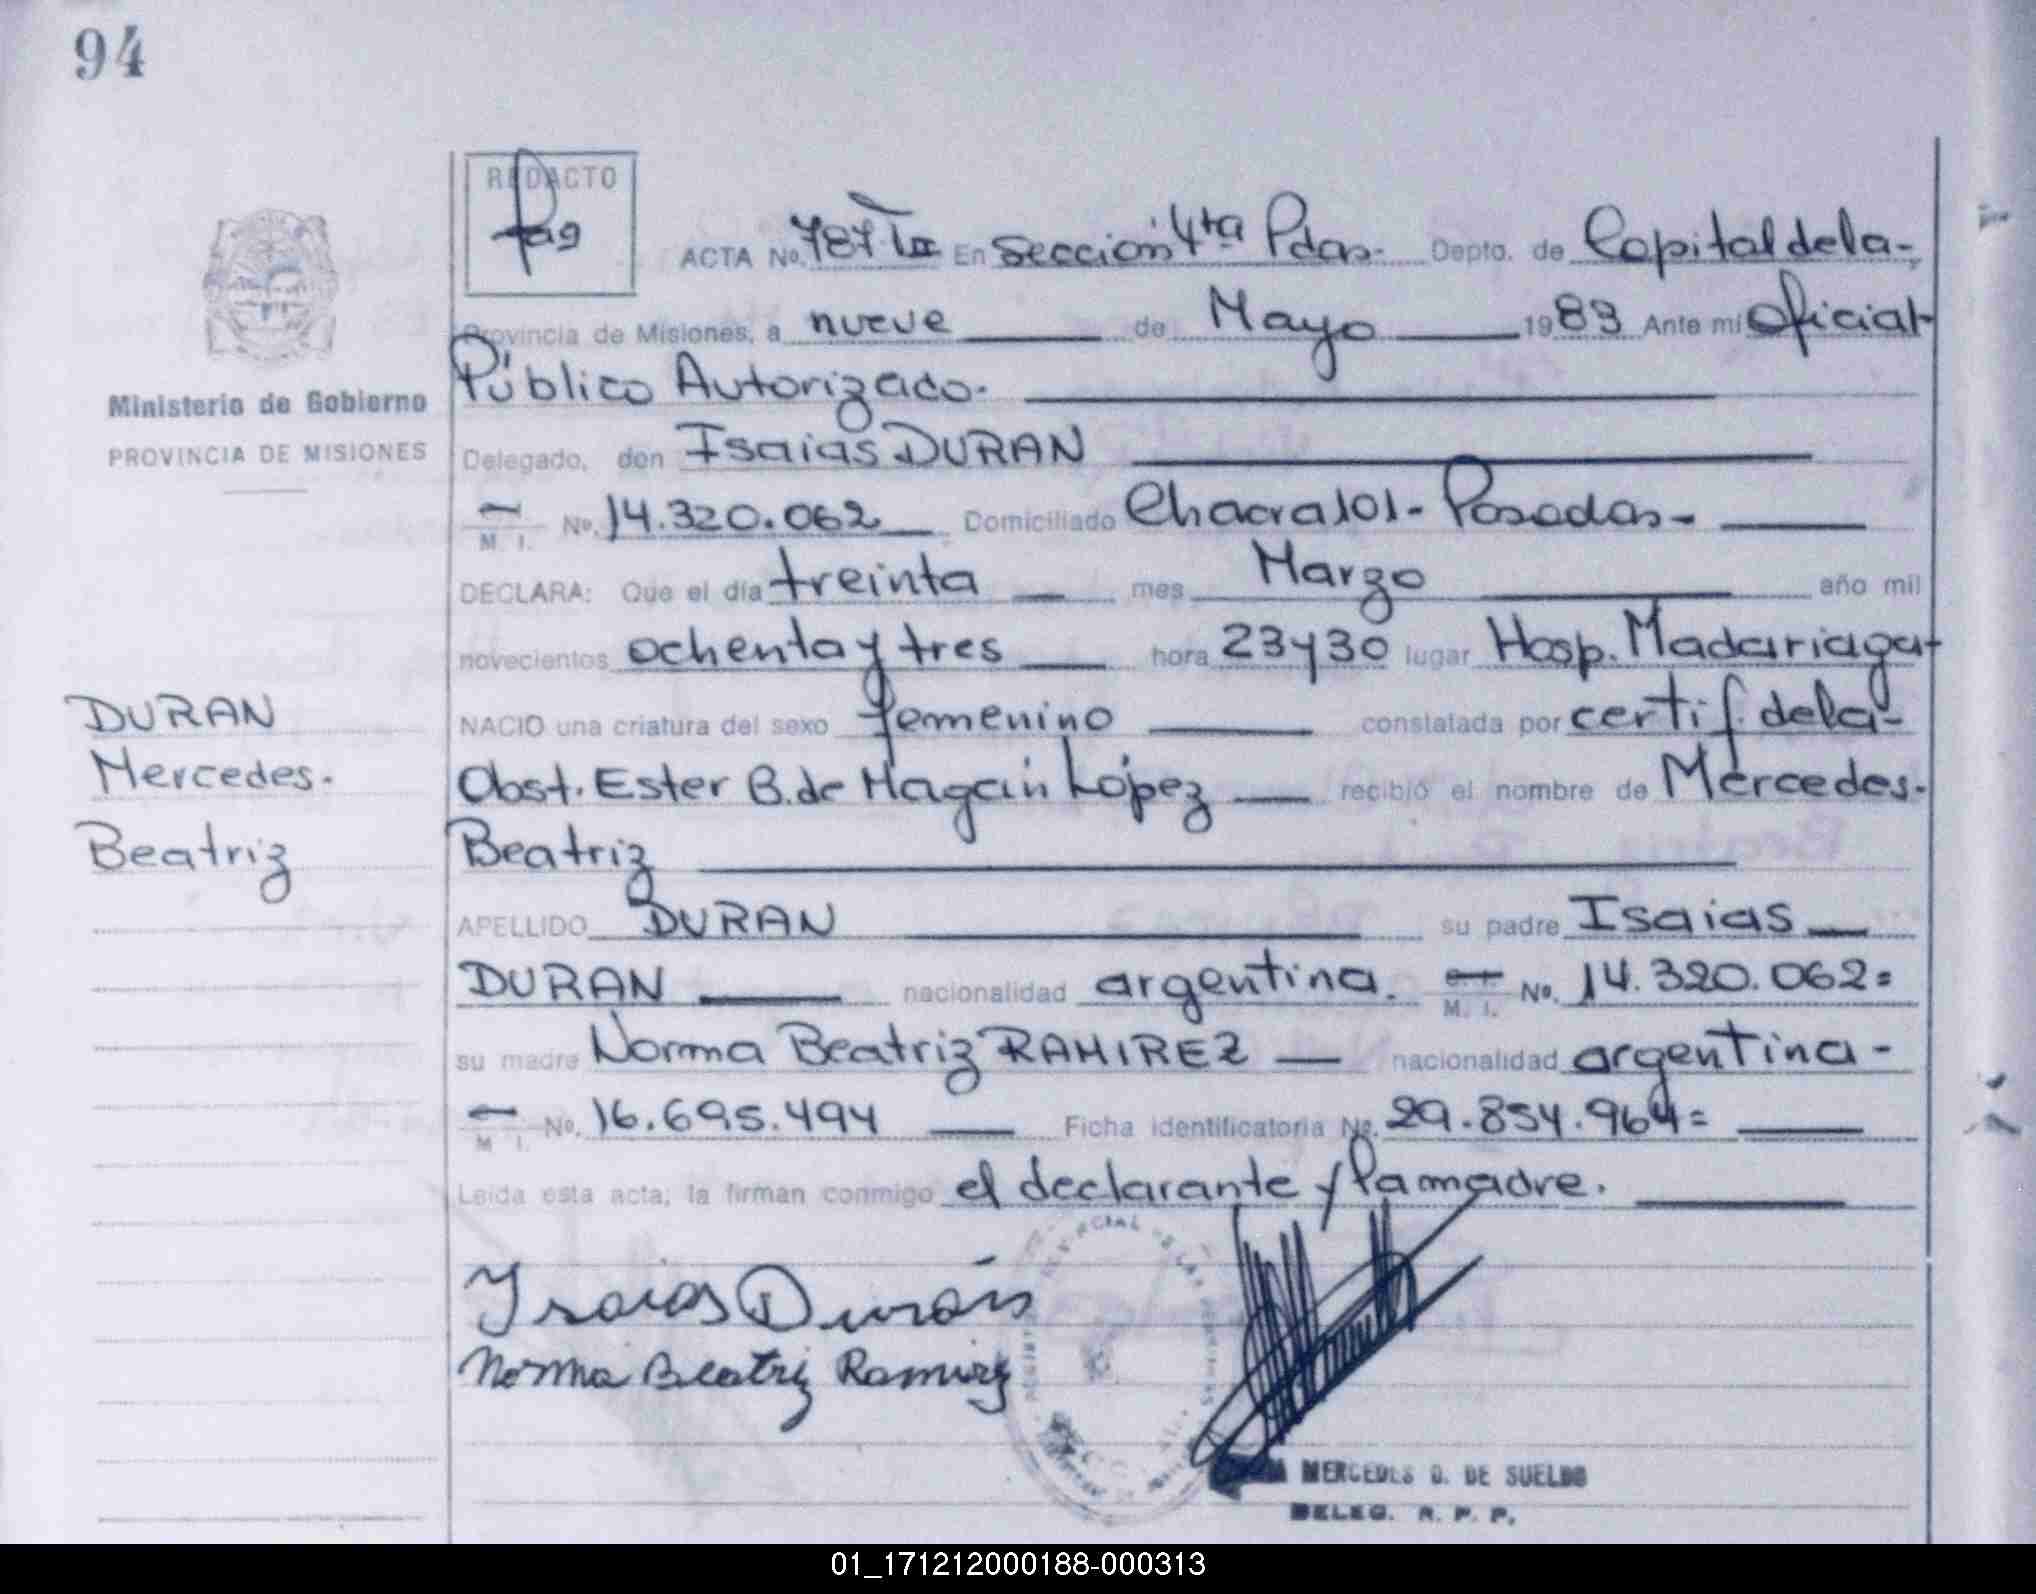 94
REDACTO
ACTA No. 787 T II En Sección 4ta Pdas. Depto. de Capital de la-
Provincia de Misiones, a nueve de Mayo 1983 Ante mi Oficial
Público Autorizado.
Delegado, don Isaias DURAN
M. I. No. 14.320.062 Domiciliado Chacra 101- Posadas-
DECLARA: Que el día treinta mes Marzo año mil
novecientos ochenta y tres hora 23 y 30 lugar Hosp. Madariaga
NACIO una criatura del sexo femenino constatada por certif. de la-
Obst. Ester B. de Magain López recibió el nombre de Mercedes.
Beatriz
APELLIDO DURAN su padre Isaias
DURAN nacionalidad argentina. M. I. No. 14.320.062=
su madre Norma Beatriz RAMIREZ nacionalidad argentina-
M. I. No. 16.695.494 Ficha identificatoria No. 29.854.964=
Leida esta acta; la firman conmigo el declarante y la madre.
Isaias Durán
Norma Beatriz Ramirez
MERCEDES D. DE SUELDO
DELEG. R. P. P.
Ministerio de Gobierno
PROVINCIA DE MISIONES
DURAN
Mercedes.
Beatriz
01_171212000188-000313